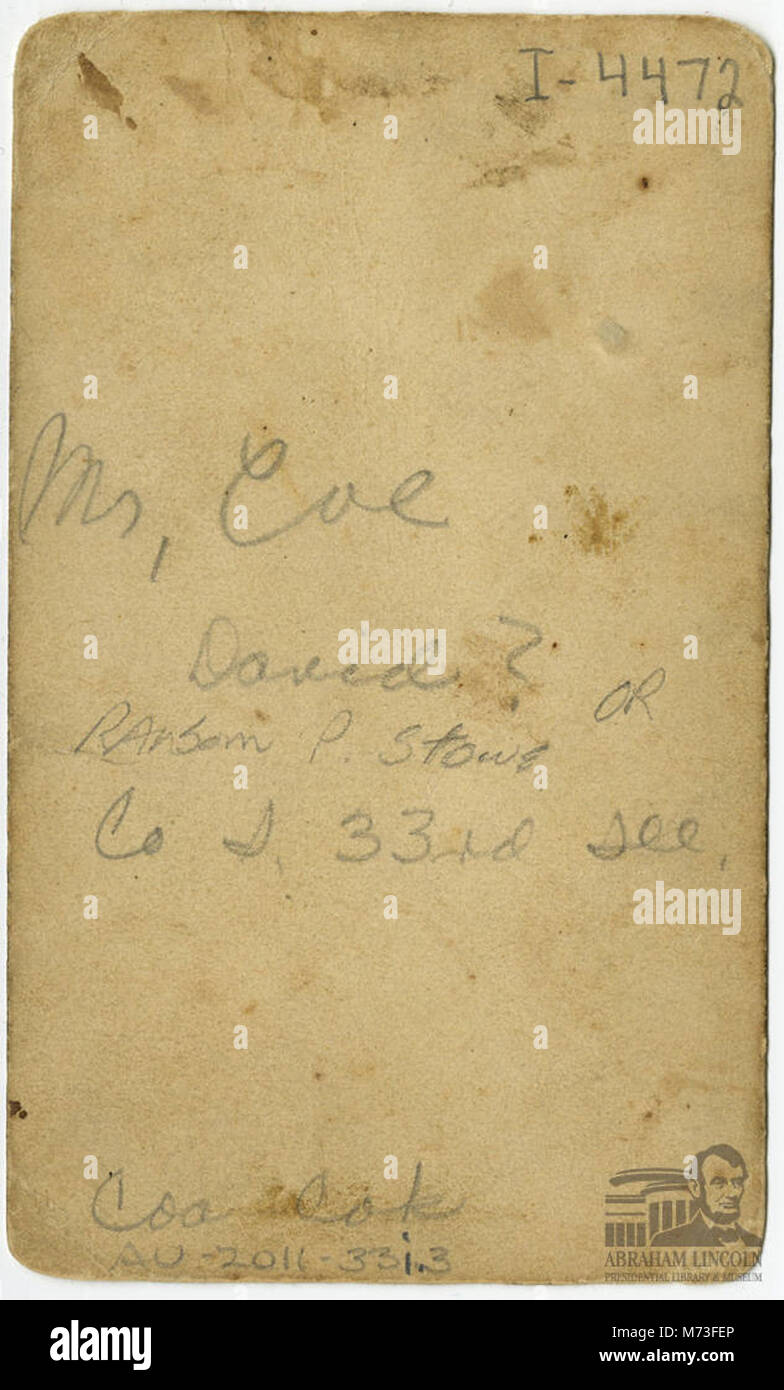 I-4472
alamy
Mr, Coe
David ?
OR
Ransom P. Stowe
Co I, 33rd Ill,
alamy
Coa Cok
AU-2011-33i.3
ABRAHAM LINCOLN
PRESIDENTIAL LIBRARY & MUSEUM
alamy
Image ID: M73FEP
www.alamy.com